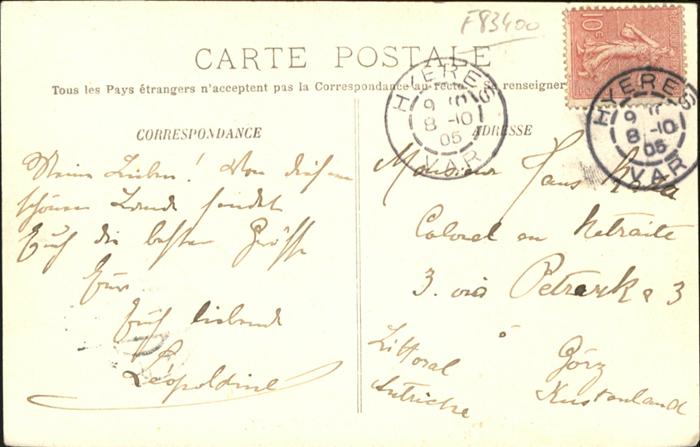 F83400
CARTE POSTALE
Tous les Pays étrangers n'acceptent pas la Correspondance au recto. renseigner
CORRESPONDANCE
Meine Lieben! Von diesem
schönen Lande sendet
Euch die besten Grüsse
Euch liebende
Léopoldine
ADRESSE
Monsieur Hans
Colonel en Retraite
3. via Petrarka 3
à Görz
Littoral Küstenland
Autriche
10c
HYERES
9
8 -10
05
VAR
HYERES
9
8 -10
05
VAR